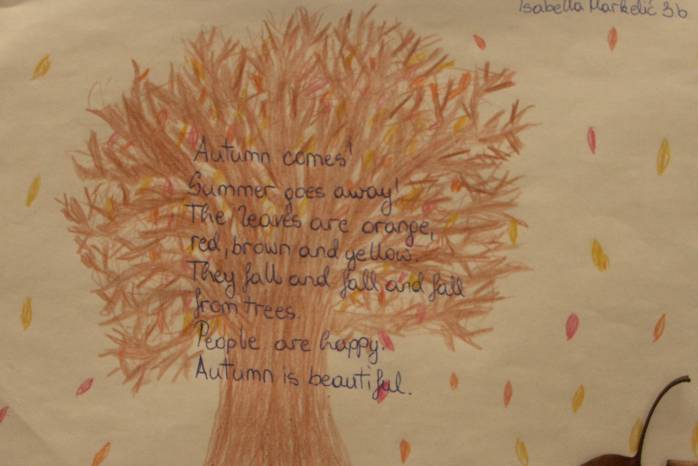 Isabella Markelić 3.b
Autumn comes!
Summer goes away!
The leaves are orange,
red, brown and yellow.
They fall and fall and fall
from trees.
People are happy.
Autumn is beautiful.